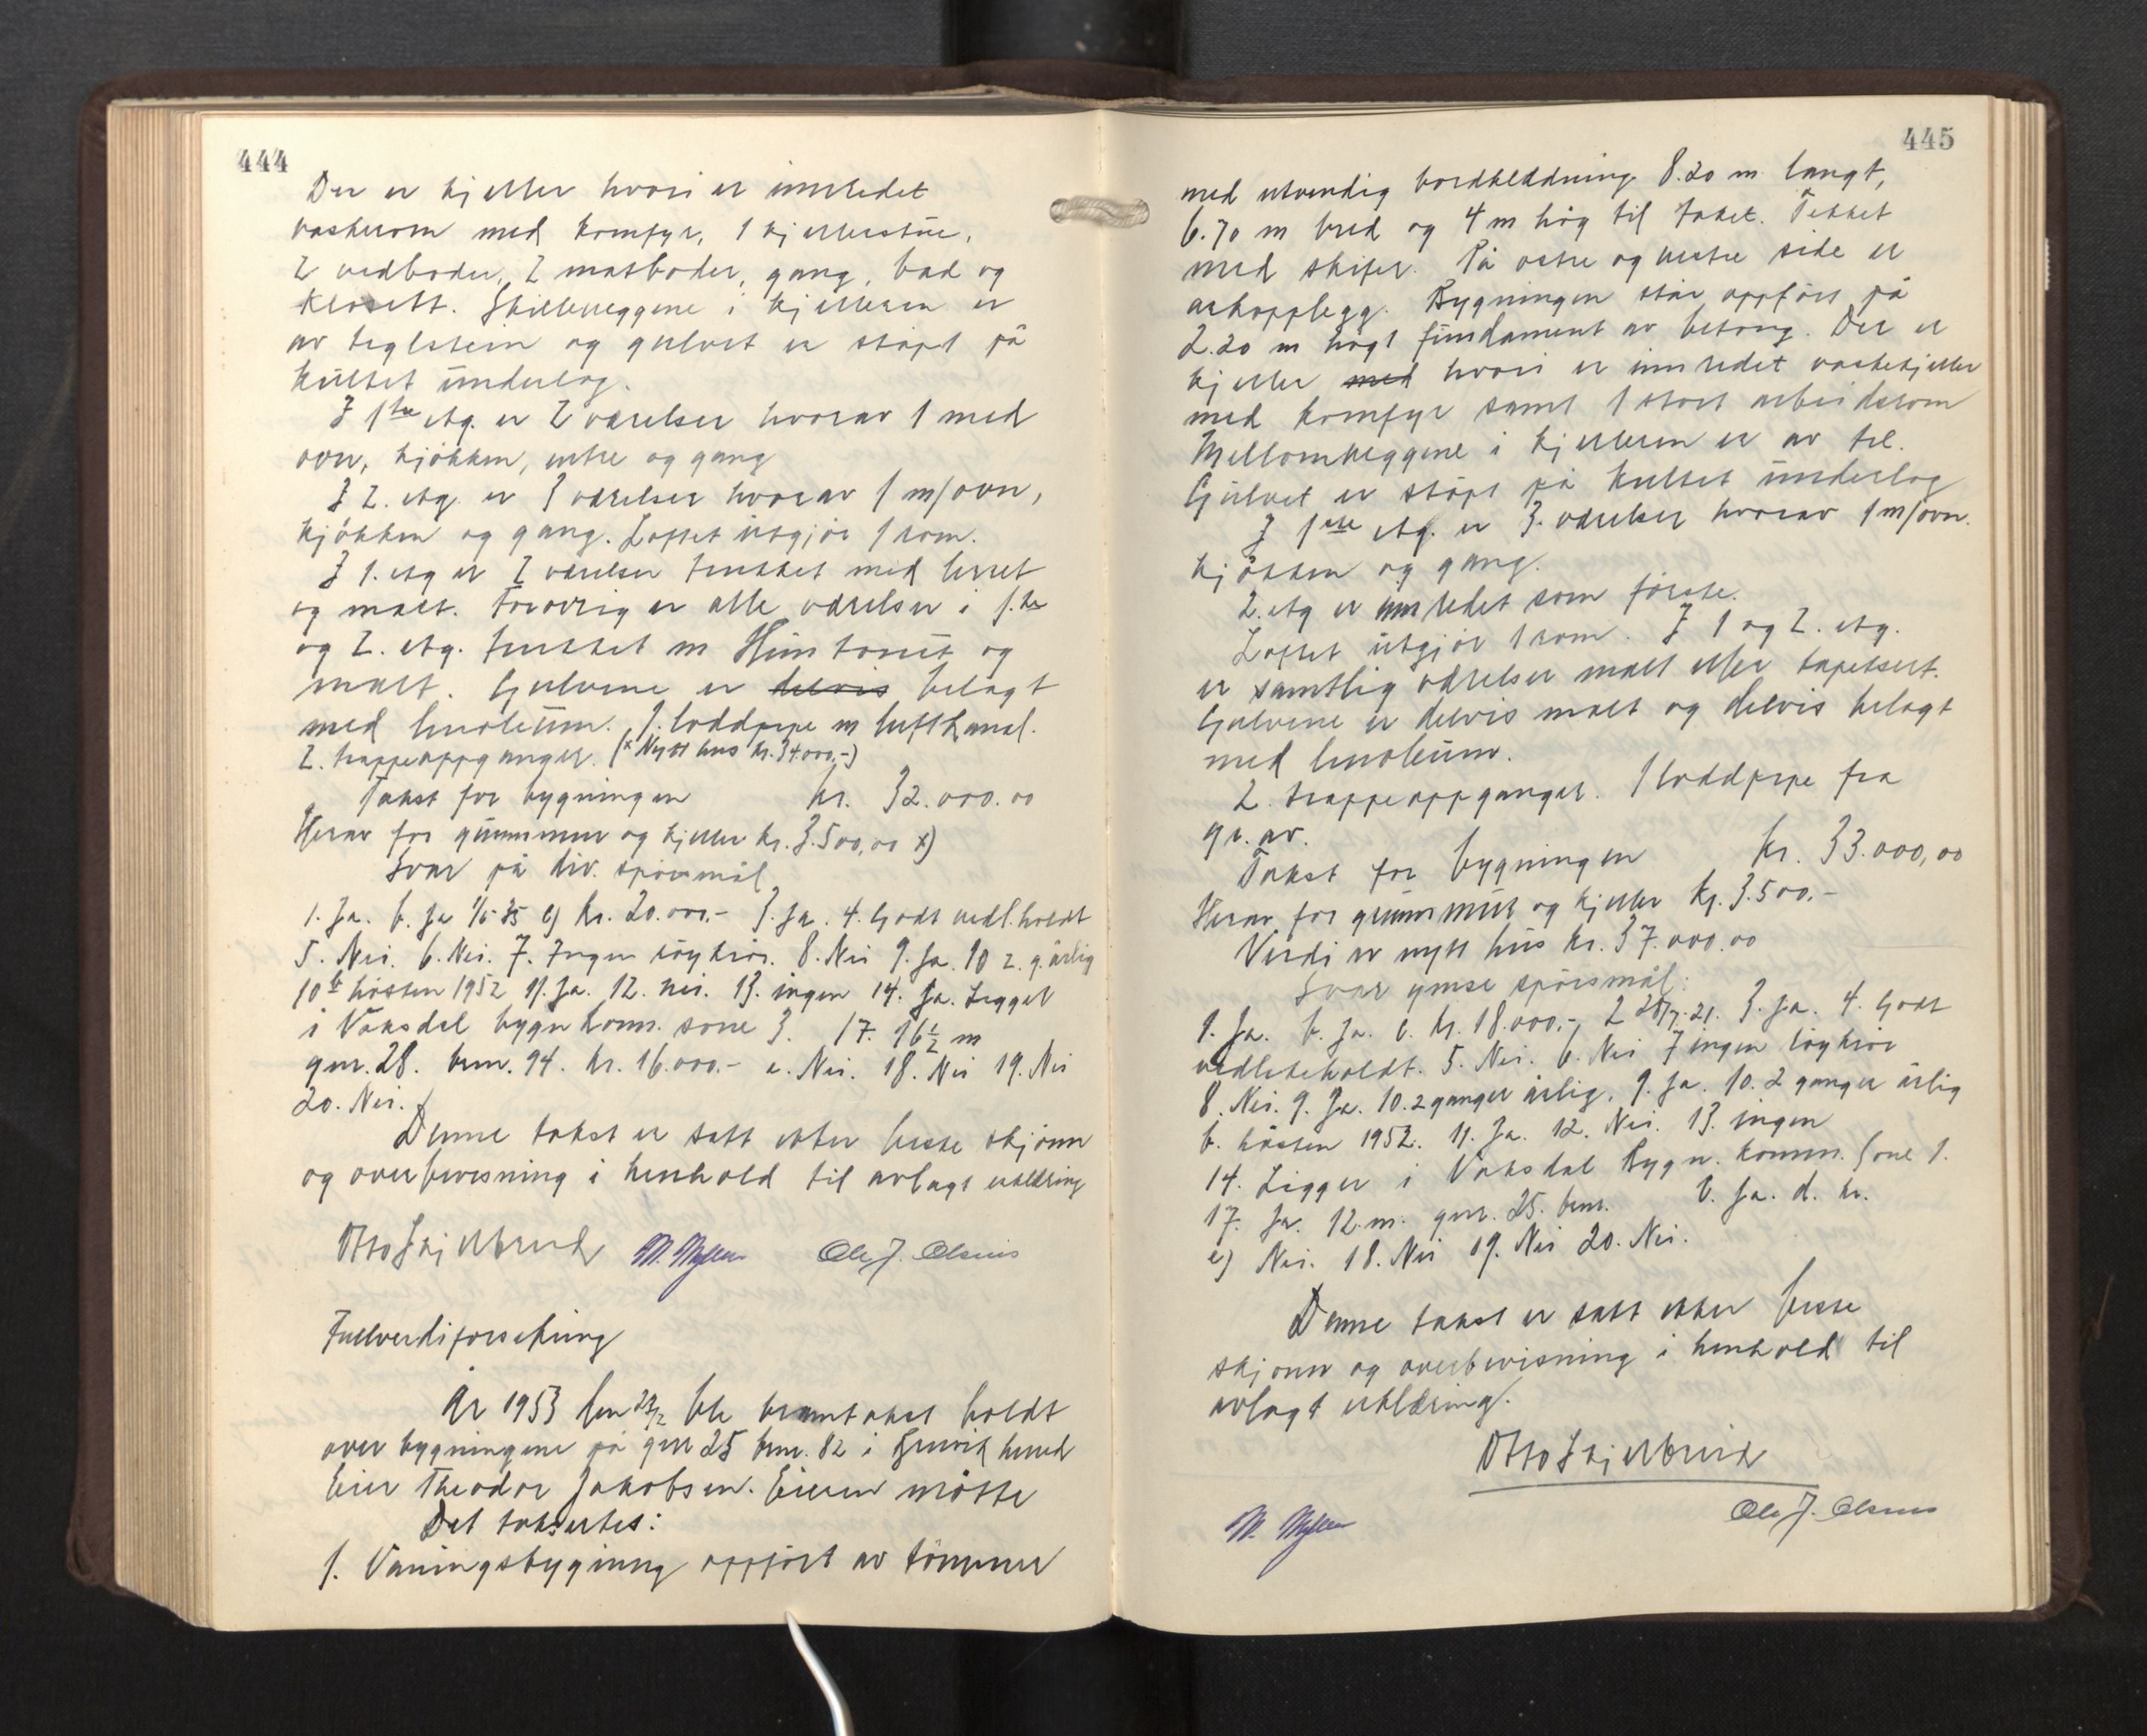 444
Der er kjeller hvori er innredet
vaskerom med komfyr, 1 kjellerstue,
2 vedboder, 2 matboder, gang, bad og
klosett. Skilleveggene i kjelleren er
av teglstein og gulvet er støpt på
kultet underlag.
I 1ste etg. er 2 værelser hvorav 1 med
ovn, kjøkken, entre og gang
I 2. etg. er 3 værelser hvorav 1 m/ovn,
kjøkken og gang. Loftet utgjør 1 rom.
I 1. etg er 2 værelser trukket med lerret
og malt. Forøvrig er alle værelser i 1.ste
og 2. etg. trukket m Huntonit og
malt. Gulvene er delvis belagt
med linoleum. 1. loddpipe m luftkanal.
2. trappeoppganger. (x Nytt hus kr. 34000.-)
Takst for bygningen kr. 32.000.00
Herav for grunnmur og kjeller kr. 3.500,00 x)
Svar på div. spørsmål
1. Ja. b. Ja 1/5-35 c) kr. 20.000.- 3. Ja. 4. Godt vedl.holdt
5. Nei. 6. Nei. 7. Ingen røykrør. 8. Nei 9. Ja. 10 2. g. årlig
10 b høsten 1952 11. Ja. 12. nei. 13. ingen 14. Ja. Ligger
i Vaksdal bygn komm. sone 3. 17. 16 1/2 m
gnr. 28. bnr. 94. kr. 16.000.- e. Nei. 18. Nei 19. Nei
20. Nei.
Denne takst er satt etter beste skjønn
og overbevisning i henhold til avlagt erklæring
Otto Skjelbreid M. Myllen Ole J. Olsnes
Fullverdiforsikring
År 1953 den 27/2 ble branntakst holdt
over bygningene på gnr 25 bnr. 82 i Bruvik herred
Eier Theodor Jakobsen. Eieren møtte
Det takseres:
1. Våningsbygning oppført av tømmer
445
med utvendig bordkledning 8.20 m langt,
6.70 m bred og 4 m høg til taket. Tekket
med skifer. På østre og vestre side er
arkopplegg. Bygningen står oppført på
2.20 m høgt fundament av betong. Der er
kjeller med hvori er innredet vaskekjeller
med komfyr samt 1 stort arbeidsrom
Mellomveggene i kjelleren er av tre.
Gulvet er støpt på kultet underlag
I 1ste etg. er 3. værelser hvorav 1 m/ovn.
kjøkken og gang.
2. etg er innredet som første.
Loftet utgjør 1 rom. I 1 og 2. etg.
er samtlig værelser malt eller tapetsert.
Gulvene er delvis malt og delvis belagt
med linoleum.
2. trappeoppganger. 1 loddpipe fra
gr. av.
Takst for bygningen kr. 33.000,00
Herav for grunnmur og kjeller kr. 3.500.-
Verdi av nytt hus kr. 37.000.00
Svar ymse spørsmål:
1. Ja. b. Ja. c. kr. 18.000.-, 2 28/7-21. 3. Ja. 4. Godt
vedlikeholdt. 5. Nei. 6. Nei 7 ingen røykrør
8. Nei. 9. Ja. 10. 2 ganger årlig. 9. Ja. 10. 2 ganger årlig
b. høsten 1952. 11. Ja. 12. Nei. 13. ingen
14. Ligger i Vaksdal Bygn. komm. Sone 1.
17. Ja. 12. m. gnr. 25. bnr. b. Ja. d. kr.
e) Nei. 18. Nei 19. Nei 20. Nei.
Denne takst er satt etter beste
skjønn og overbevisning i henhold til
avlagt erklæring.
Otto Skjelbreid
M. Myllen Ole J. Olsnes